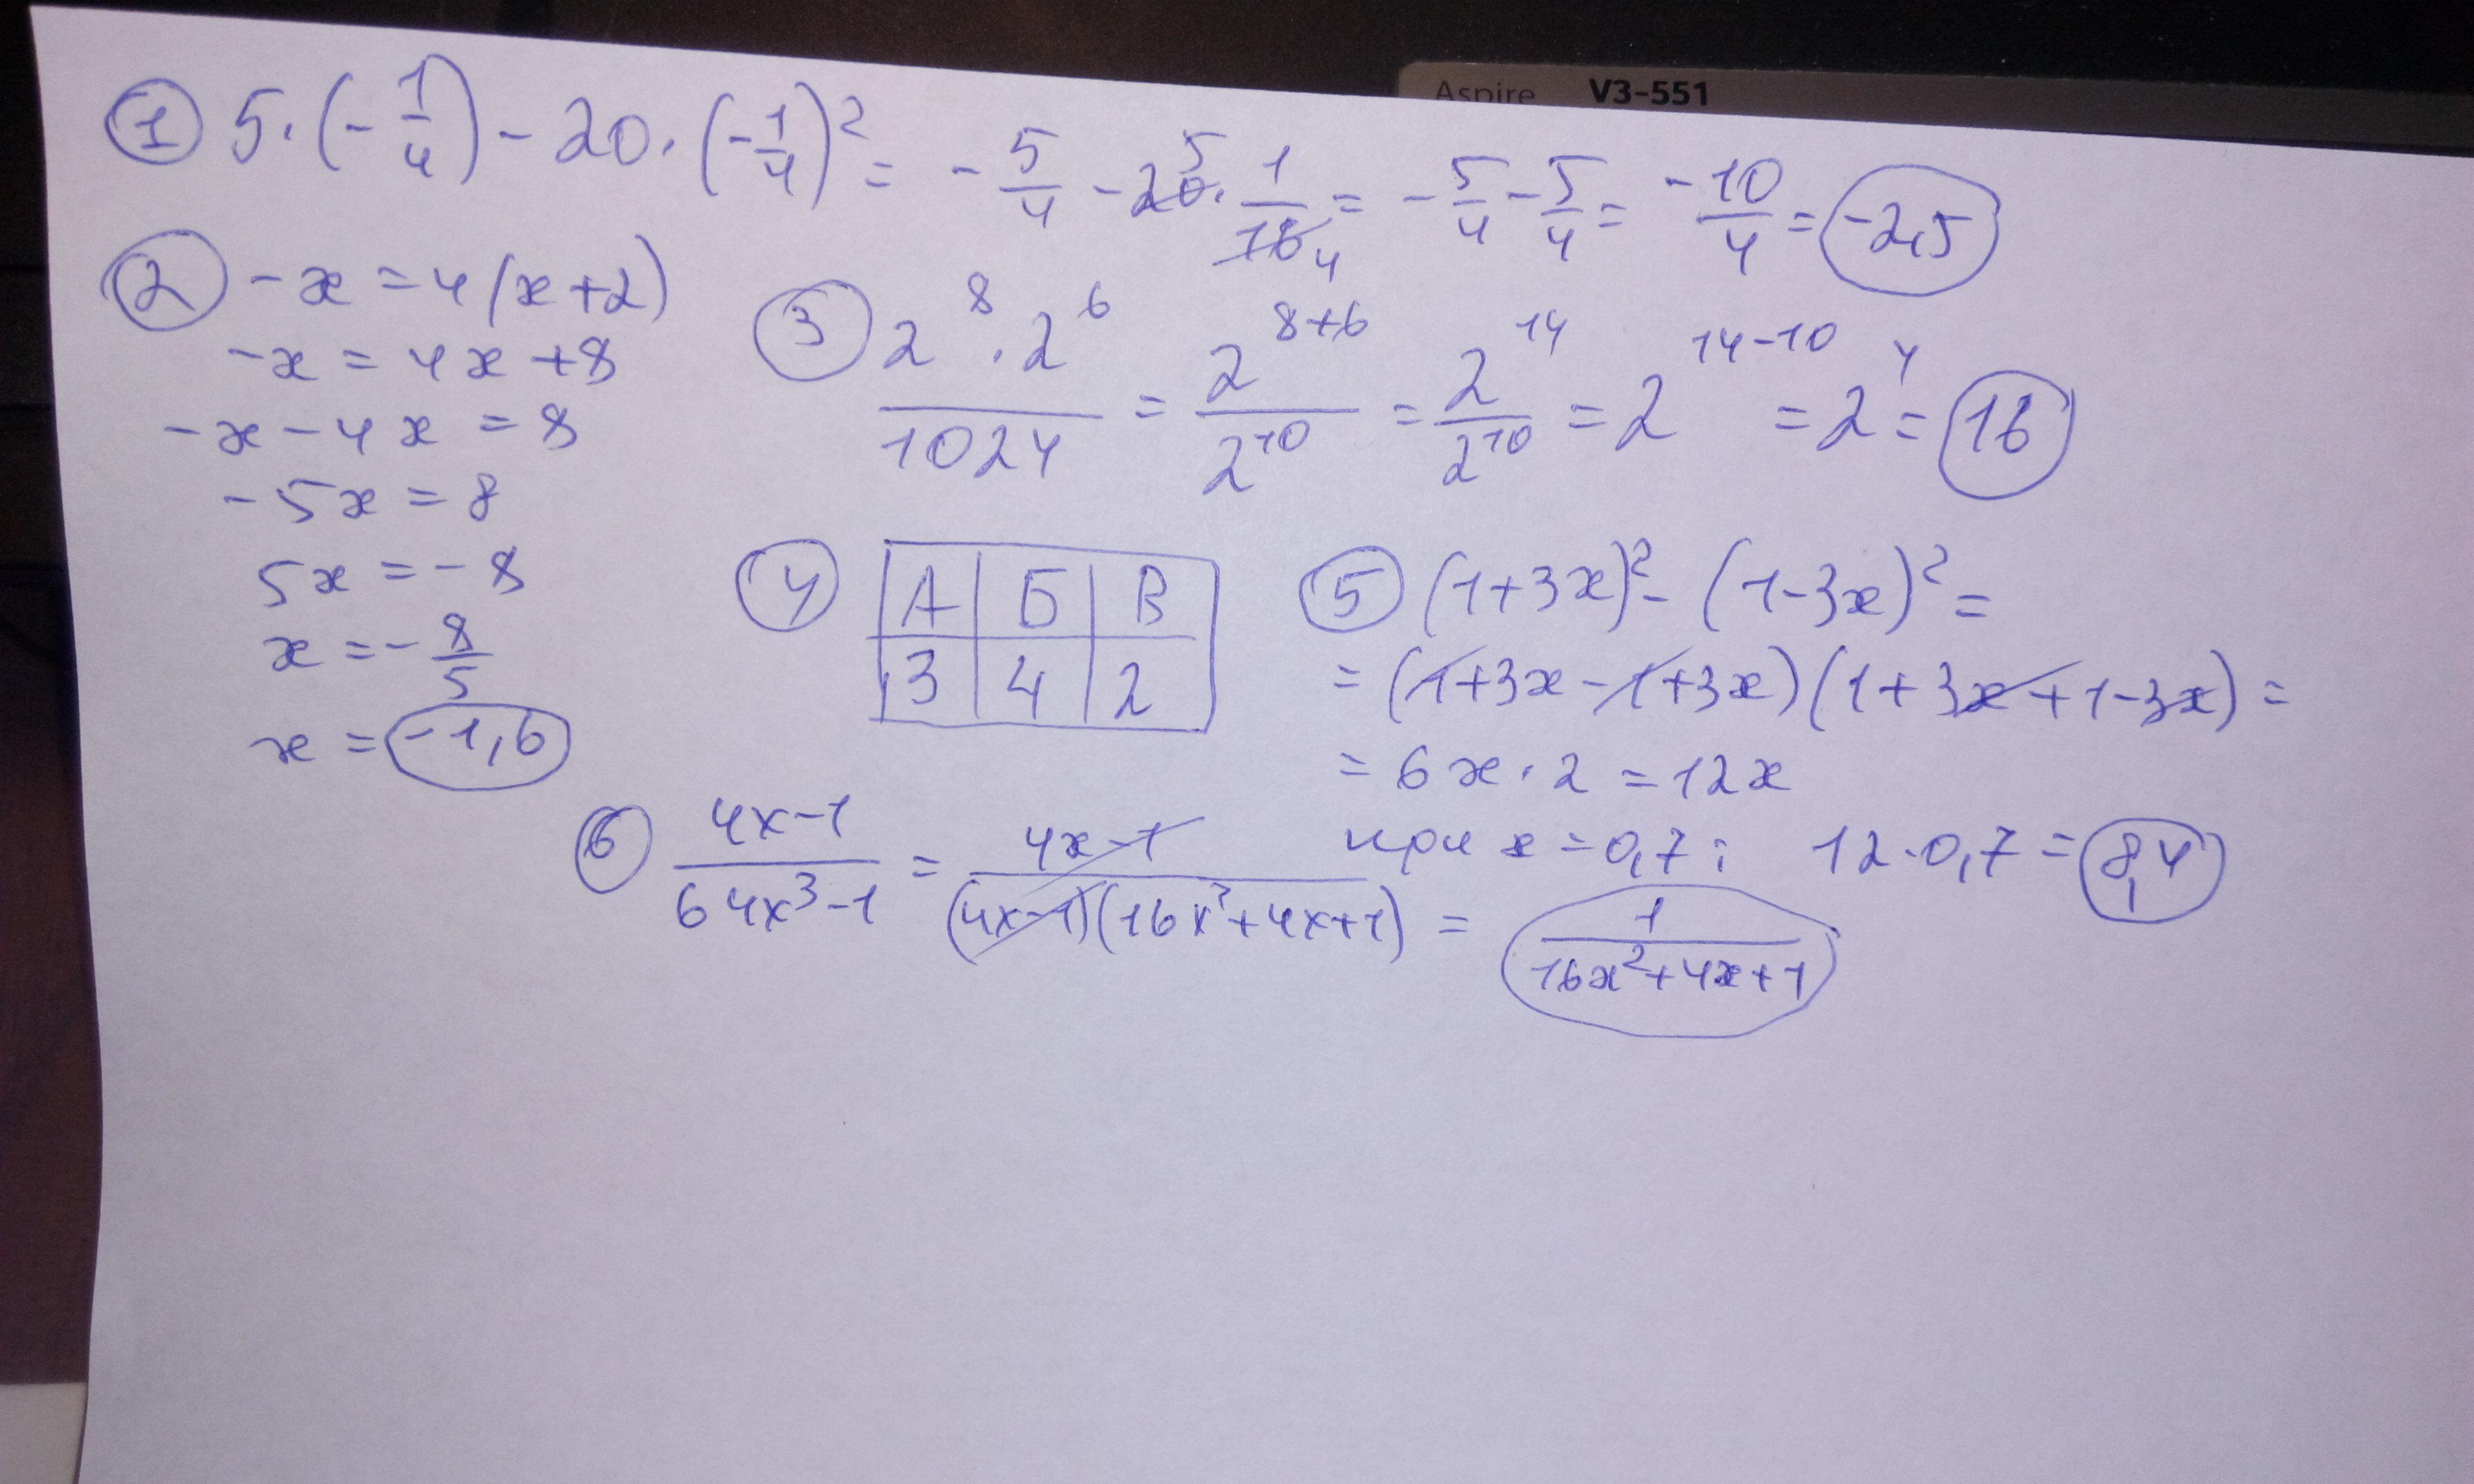 Aspire V3-551
① 5·(-1/4) - 20·(-1/4)² = -5/4 - 20 5·1/16 4 = -5/4 - 5/4 = -10/4 = -2,5
② -x = 4(x+2)
-x = 4x+8
-x-4x = 8
-5x = 8
5x = -8
x = -8/5
x = -1,6
③ 2⁸·2⁶/1024 = 2⁸⁺⁶/2¹⁰ = 2¹⁴/2¹⁰ = 2¹⁴⁻¹⁰ = 2⁴ = 16
④ А Б В
3 4 2
⑤ (1+3x)² - (1-3x)² =
= (1+3x-1+3x)(1+3x+1-3x) =
= 6x·2 = 12x
при x = 0,7: 12·0,7 = 8,4
⑥ 4x-1/64x³-1 = 4x-1/(4x-1)(16x²+4x+1) = 1/16x²+4x+1